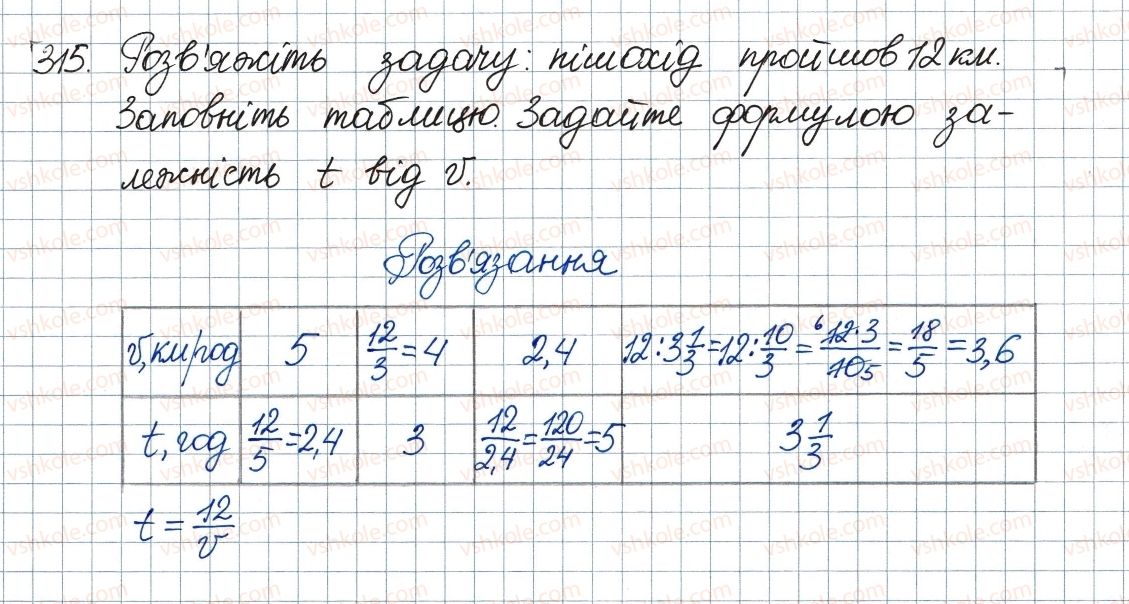 315. Розв'яжіть задачу: пішохід пройшов 12 км.
Заповніть таблицю. Задайте формулою за-
лежність t від v.
Розв'язання
v, км/год 5 12/3=4 2,4 12:3 1/3=12:10/3=12·3/10=18/5=3,6
t, год 12/5=2,4 3 12/2,4=120/24=5 3 1/3
t = 12/v